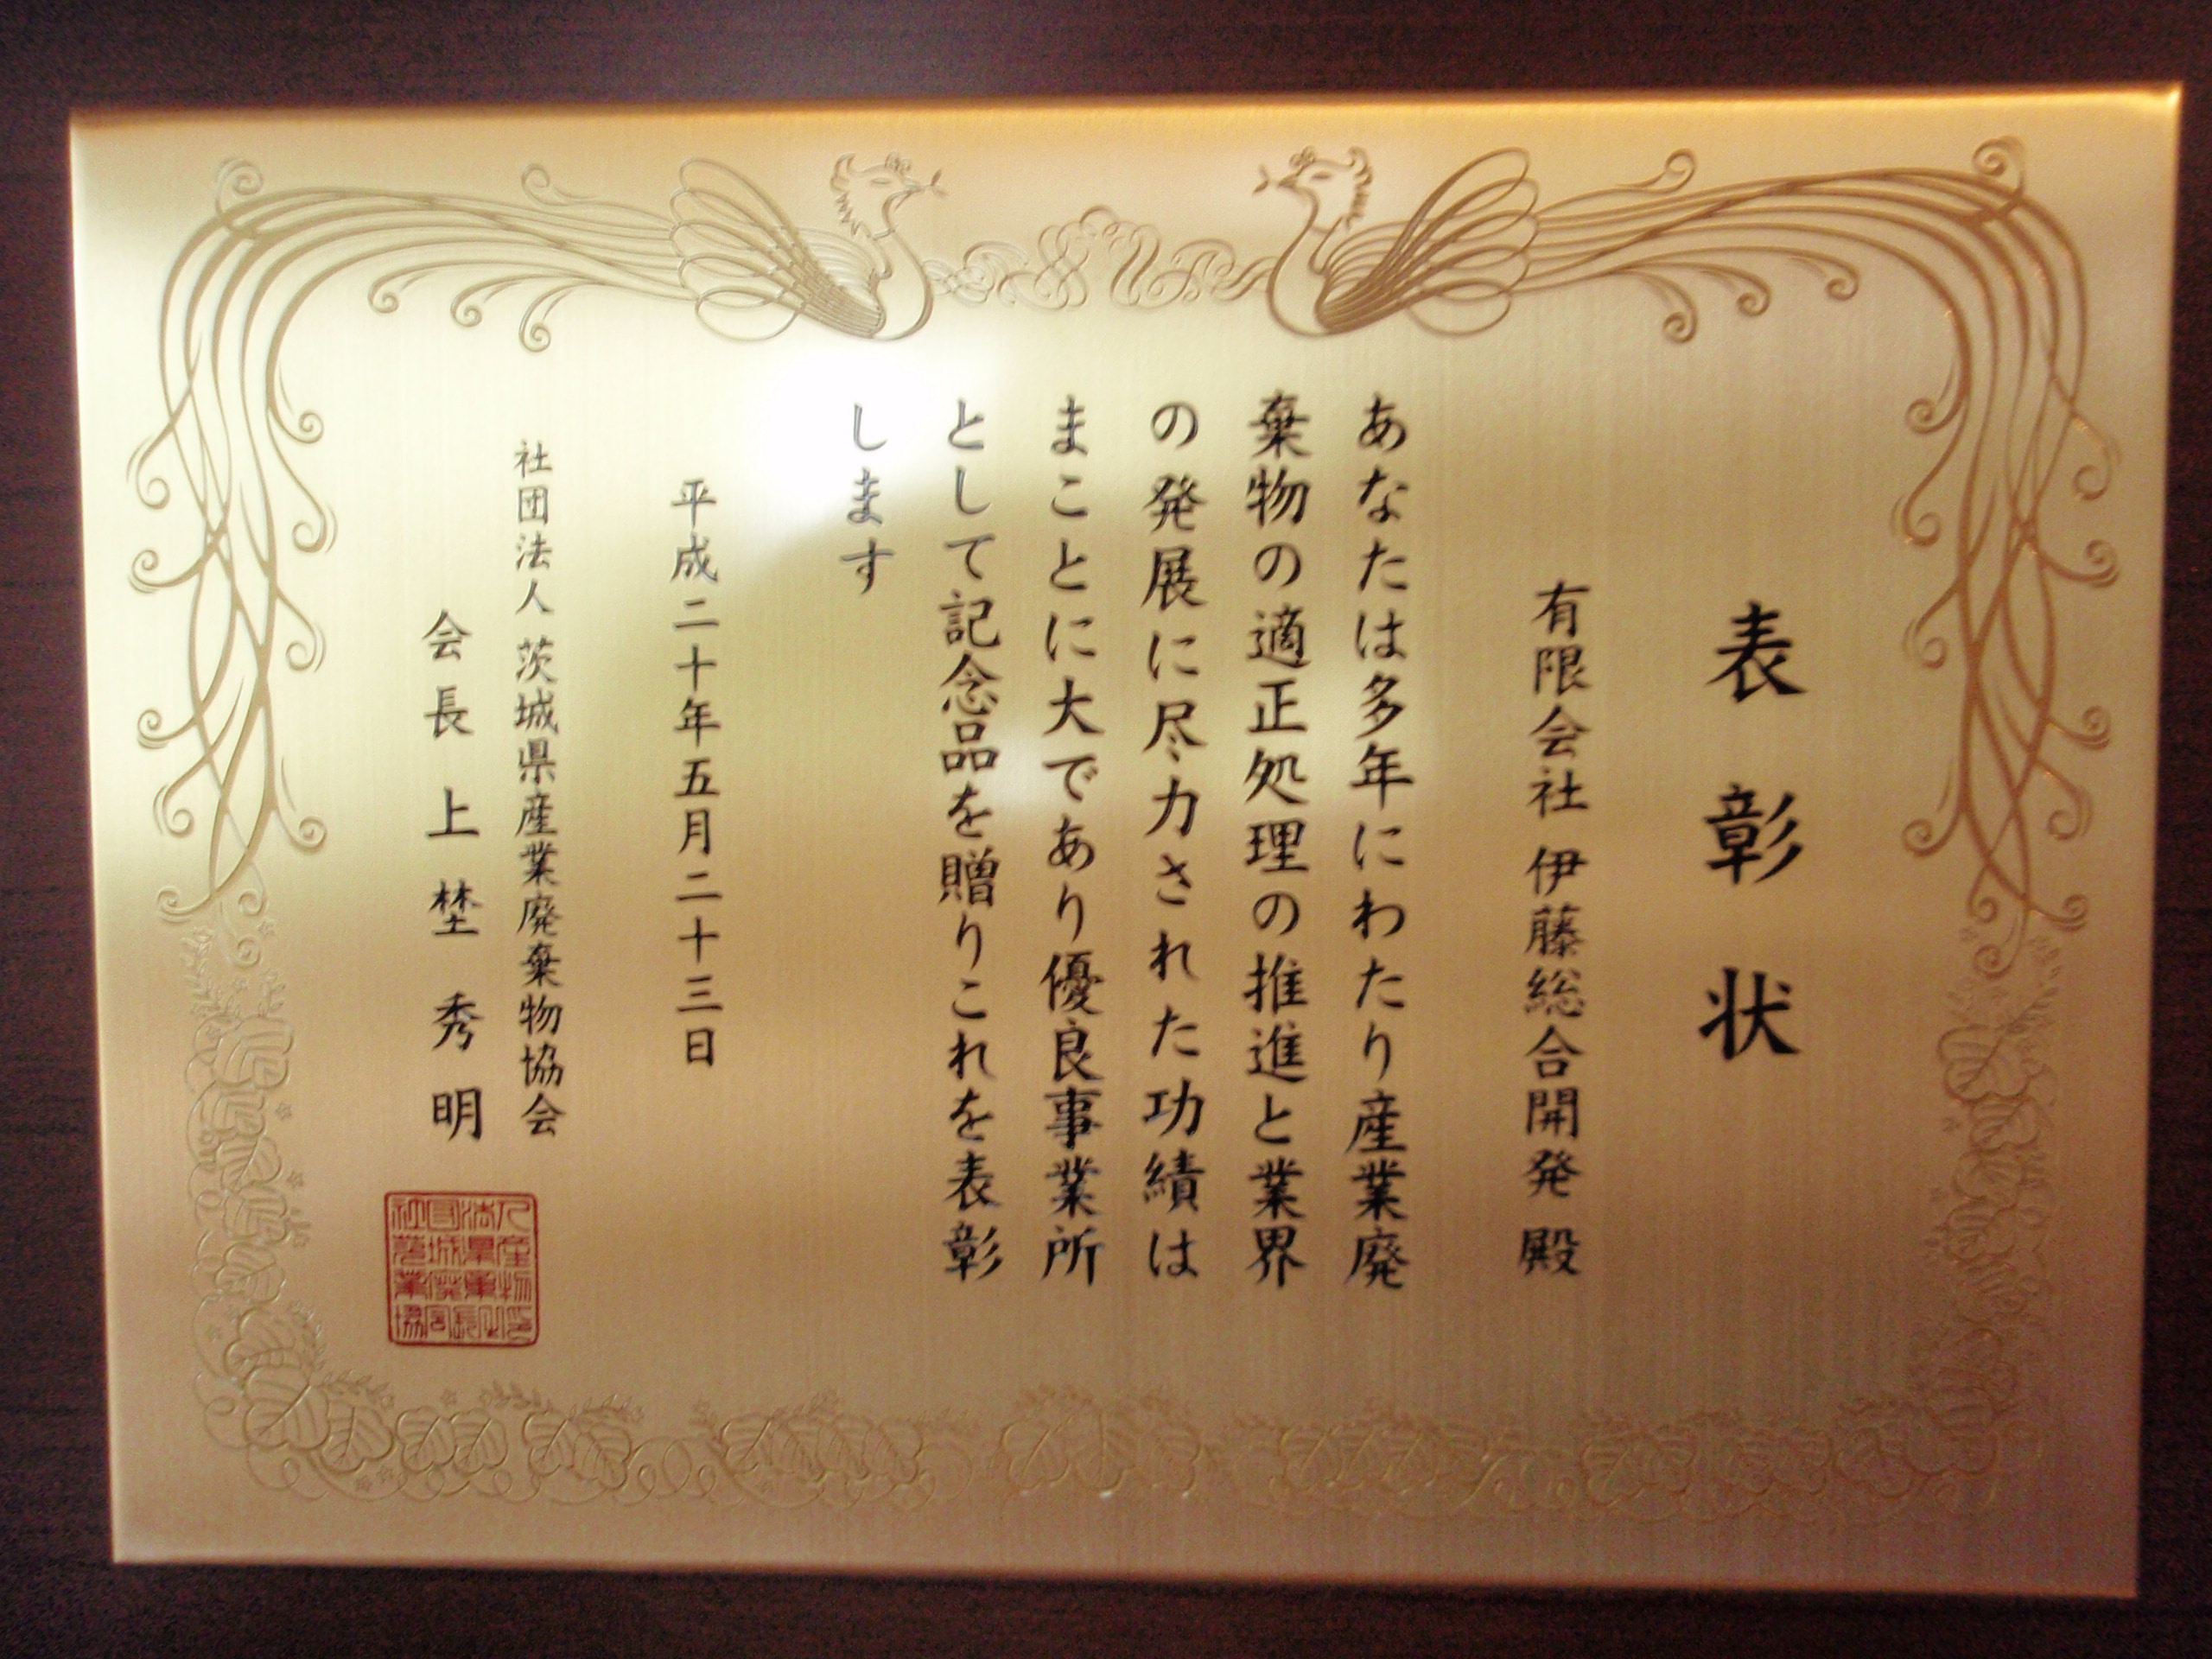 表彰状
有限会社 伊藤総合開発 殿
あなたは多年にわたり産業廃
棄物の適正処理の推進と業界
の発展に尽力された功績は
まことに大であり優良事業所
として記念品を贈りこれを表彰
します
平成二十年五月二十三日
社団法人 茨城県産業廃棄物協会
会長 上埜秀明